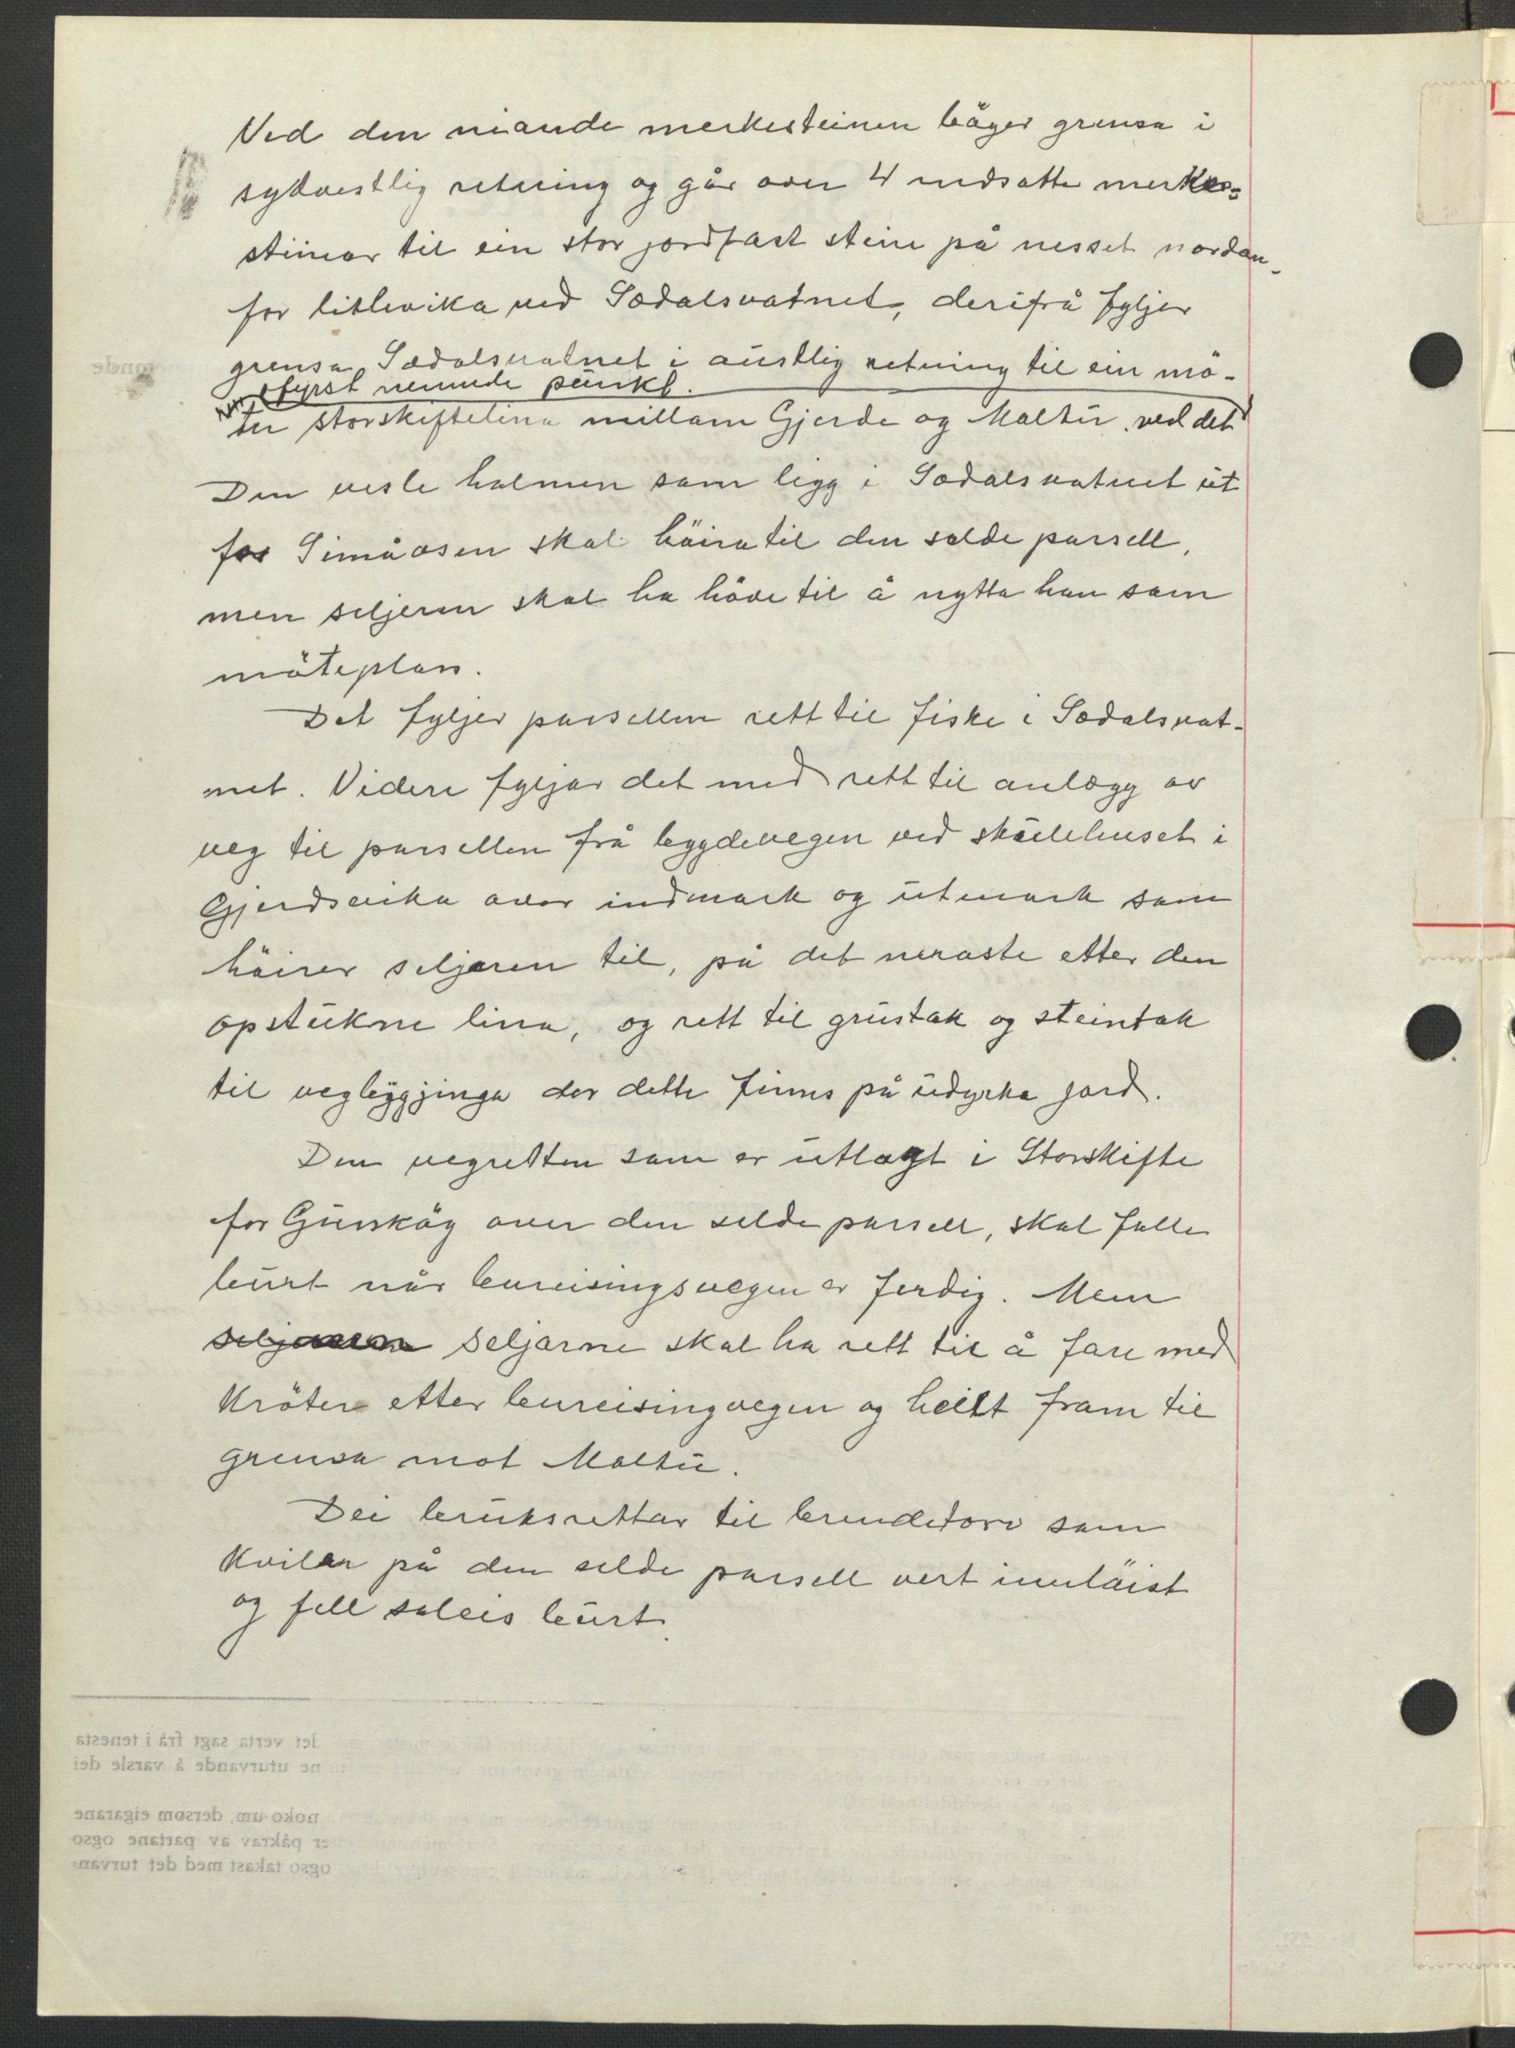 Ved den niande merkesteinen bäger grensa i
sydvestlig retning og går over 4 nedsatte merke=
steinar til ein stor jordfast stein på nesset nordan-
for litlevika ved Sædalsvatnet, derifrå fyljer
grensa Sædalsvatnet i austlig retning til ein mö-
ter storskiftelina millam Gjerde og Maltu. ved det
fyrst nemnde punkt.
Den vesle halmen sam ligg i Sædalsvatnet ut
for Simåosen skal häira til den selde parsell,
men seljeren skal ha höve til å nytta han sam
möteplass.
Det fyljer parsellen rett til fiske i Sædalsvat-
net. Videre fyljar det med rett til anlægg av
veg til parsellen frå bygdevegen ved skulehuset i
Gjerdsvika over indmark og utmark sam
häirer seljaren til, på det neraste etter den
opstukne lina, og rett til grustak og steintak
til vegbyggjinga der dette finns på udyrka jord.
Den vegretten sam er utlagt i Storskifte
for Gurskäy over den selde parsell, skal falle
burt når bureisingsvegen er ferdig. Men
seljaren seljarne skal ha rett til å fare med
Kröter etter bureisingvegen og heilt fram til
grensa mot Maltu.
Dei bruksrettar til brendetorv sam
Kviler på den selde parsell vert innläist
og fell saleis burt.
det verta sagt frå i tenesta
ne uturvande å varsle dei
noko um, dersom eigarane
er påkrav av partane ogso
ogso takast med det turvan-